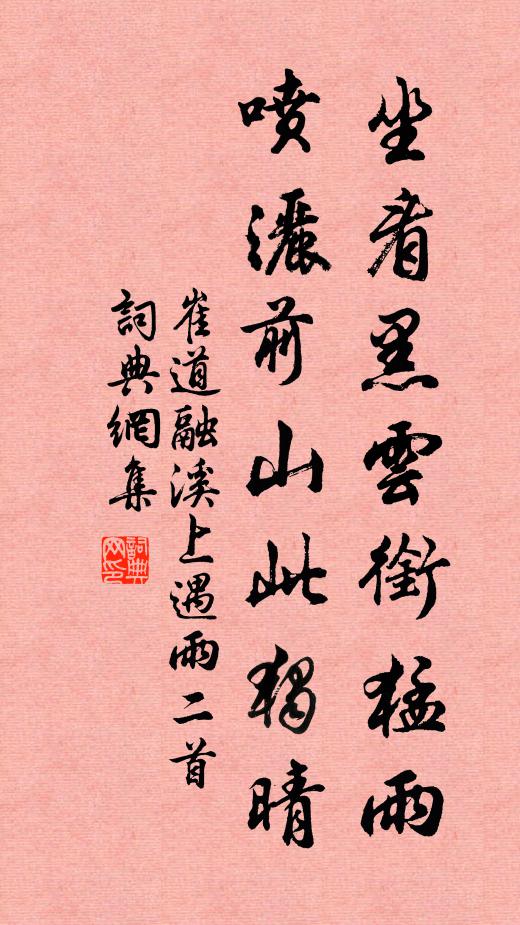 坐看黑雲銜猛雨
噴灑前山此獨晴
崔道融溪上遇雨二首
詞典網集
詞典网印